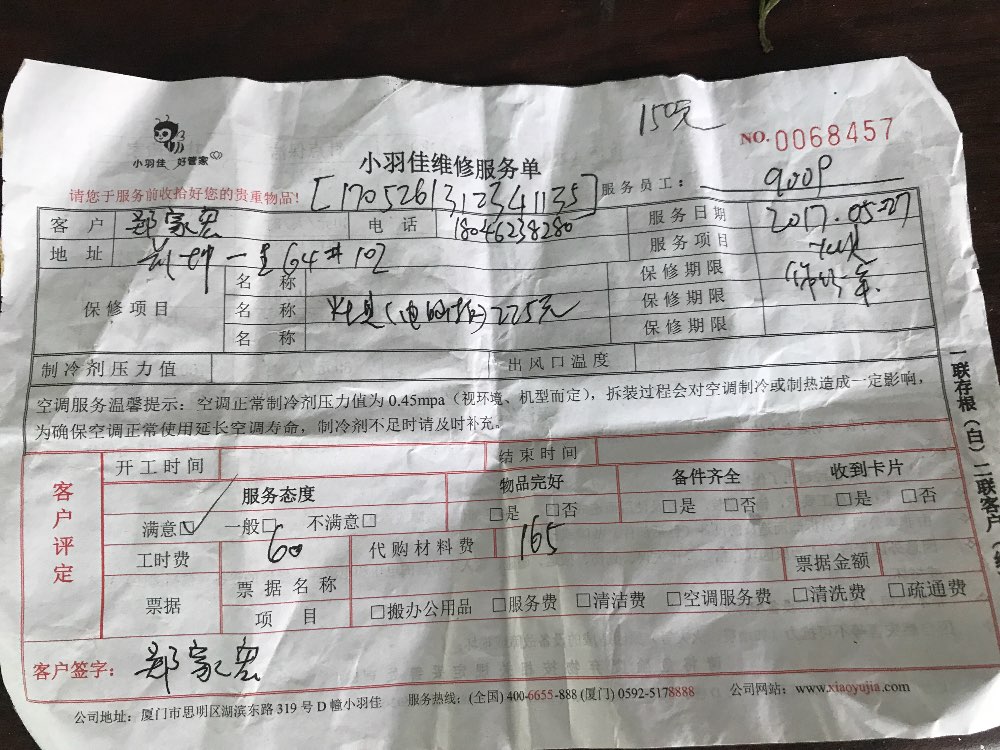 150元
NO.0068457
小羽佳 好管家
小羽佳维修服务单
请您于服务前收拾好您的贵重物品！
[1705261312341135]
服务员工： 900P
客户 郑家宏 电话 18046238280 服务日期 2017.05.27
地址 一里64#102 服务项目
保修项目
名称 保修期限
名称 灶具( )225元 保修期限
名称 保修期限
制冷剂压力值 出风口温度
空调服务温馨提示：空调正常制冷剂压力值为 0.45mpa（视环境、机型而定），拆装过程会对空调制冷或制热造成一定影响，
为确保空调正常使用延长空调寿命，制冷剂不足时请及时补充。
客户评定
开工时间 结束时间
服务态度 物品完好 备件齐全 收到卡片
满意☑ 一般□ 不满意□ □是 □否 □是 □否 □是 □否
工时费 60 代购材料费 165
票据 票据名称 票据金额
项目 □搬办公用品 □服务费 □清洁费 □空调服务费 □清洗费 □疏通费
客户签字： 郑家宏
公司地址：厦门市思明区湖滨东路 319 号 D 幢小羽佳 服务热线：(全国) 400-6655-888 (厦门) 0592-5178888 公司网站：www.xiaoyujia.com
一联存根（白）二联客户